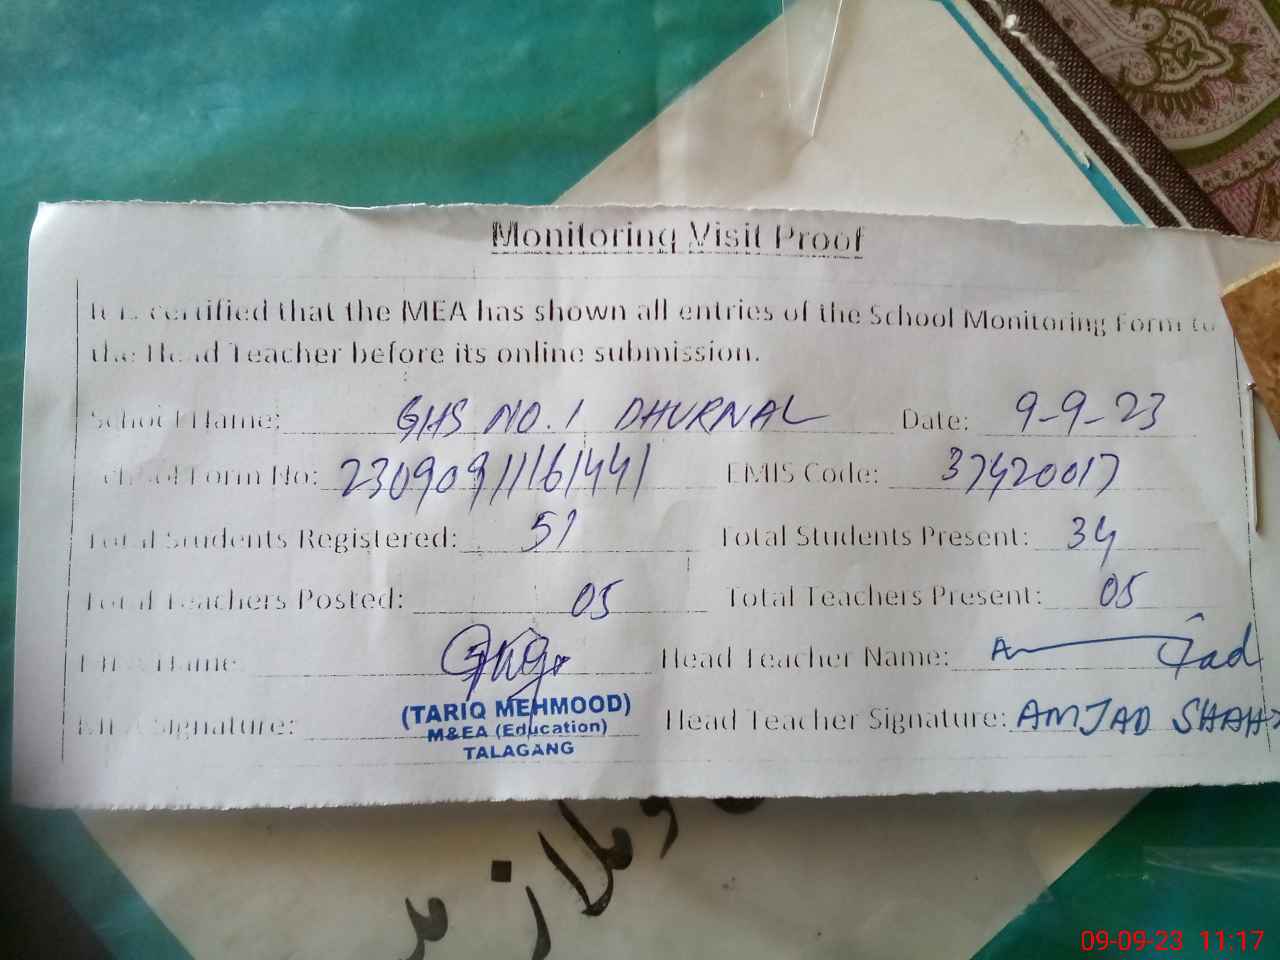 Monitoring Visit Proof
It is certified that the MEA has shown all entries of the School Monitoring Form to
the Head Teacher before its online submission.
School Name: GHS NO. 1 DHURNAL Date: 9-9-23
School Form No: 23090911161441 EMIS Code: 37420017
Total Students Registered: 51 Total Students Present: 34
Total Teachers Posted: 05 Total Teachers Present: 05
MEA Name Head Teacher Name:
MEA Signature: (TARIQ MEHMOOD) Head Teacher Signature: AMJAD SHAH
M&EA (Education)
TALAGANG
09-09-23 11:17